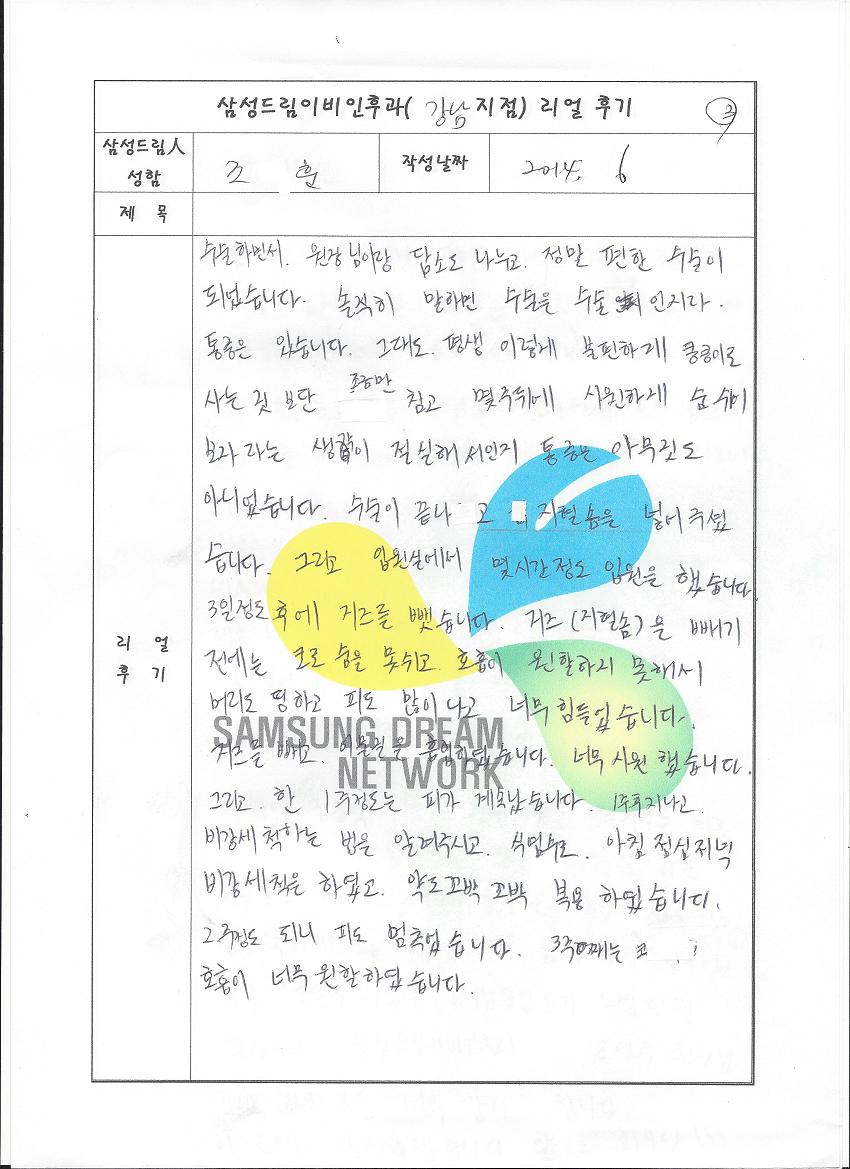 삼성드림이비인후과( 강남 지점) 리얼 후기
삼성드림人 성함
조 훈
작성날짜
2014. 6
제 목
리 얼 후 기
수술하면서. 원장님이랑 담소도 나누고. 정말 편한 수술이
되었습니다. 솔직히 말하면 수술은 수술 인지라.
통증은 있습니다. 그래도. 평생 이렇게 불편하게 킁킁이로
사는 것 보단 조금만 참고 몇주뒤에 시원하게 숨쉬어
보자 라는 생각이 절실해서인지 통증은 아무것도
아니었습니다. 수술이 끝나 고 지혈솜을 넣어 주셨
습니다. 그리고 입원실에서 몇시간정도 입원을 했습니다
3일정도 후에 거즈를 뺏습니다. 거즈 (지혈솜)을 빼기
전에는 코로 숨을 못쉬고. 호흡이 원할하지 못해서
머리도 띵하고 피도 많이 나고 너무 힘들었습니다.
거즈를 빼고. 이물질을 흡입하였습니다. 너무 시원 했습니다.
그리고. 한 1주정도는 피가 계속났습니다. 1주후지나고.
비강세척하는 법을 알려주시고. 식염수로. 아침 점심저녁
비강세척을 하였고. 약도꼬박 꼬박 복용 하였습니다.
2주정도 되니 피도 멈추었습니다. 3주째는 코
호흡이 너무 원할하였습니다.
SAMSUNG DREAM
NETWORK